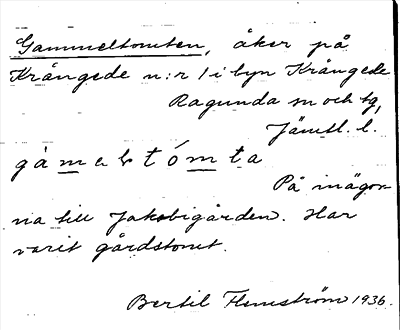 Gammeltomten, åker på
Krångede n:r 1 i byn Krångede
Ragunda sn och tg,
Jämtl. l.
gàmeltómta
På inägor-
na till Jakobigården. Har
varit gårdstomt.
Bertil Flemström 1936.